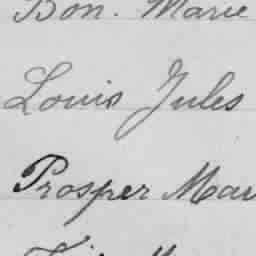 Bon. Marie
Louis Jules
Prosper Mar